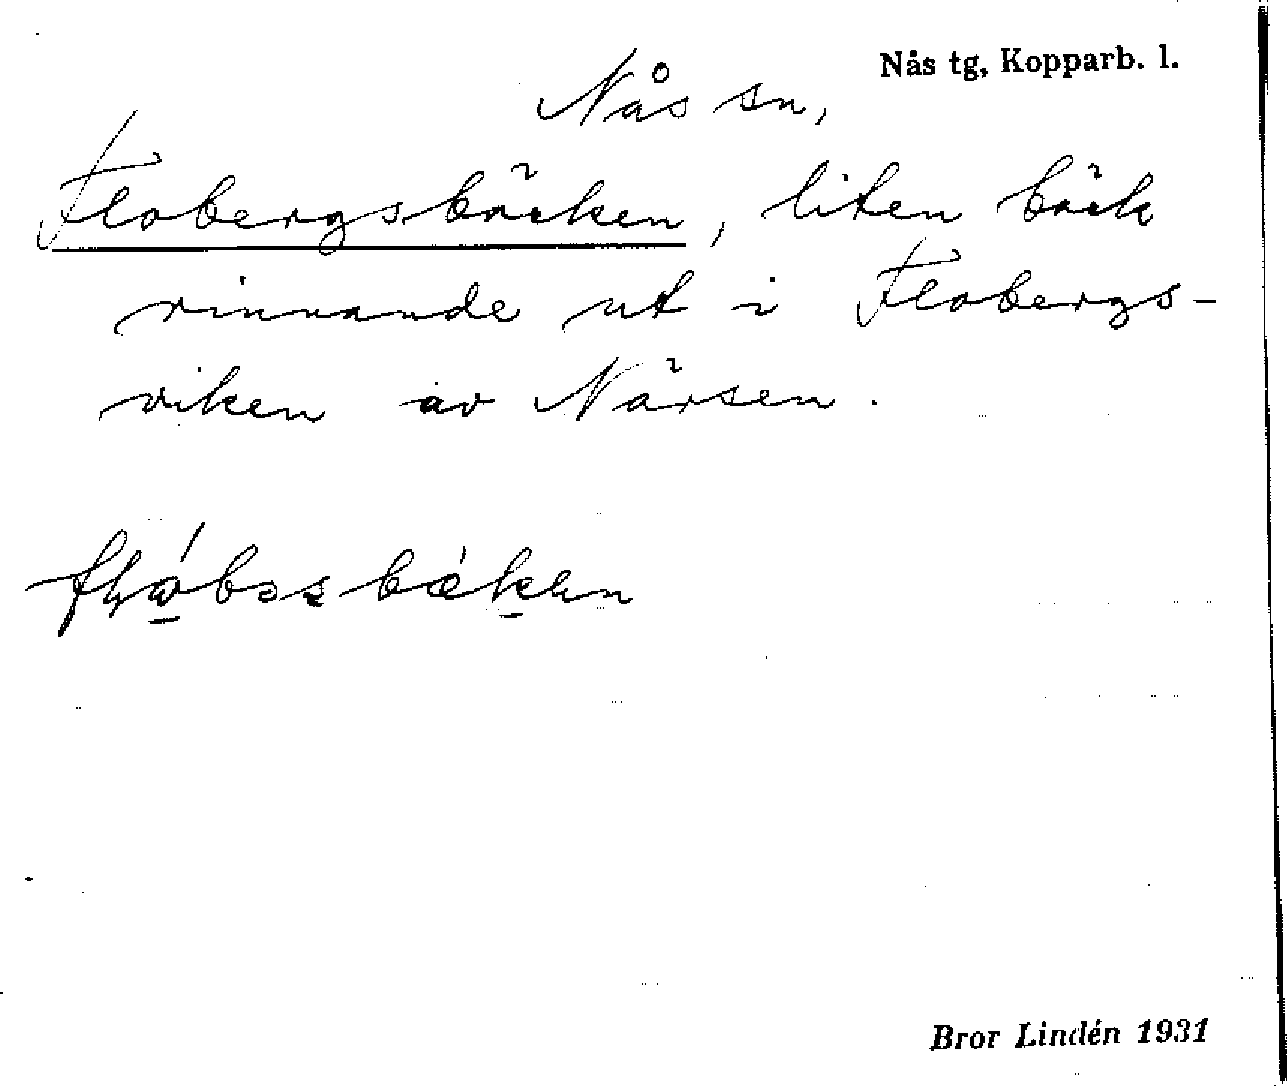 Nås tg, Kopparb. l.
Nås sn,
Flobergsbäcken, liten bäck
rinnande ut i Flobergs-
viken av Närsen.
Bror Lindén 1931